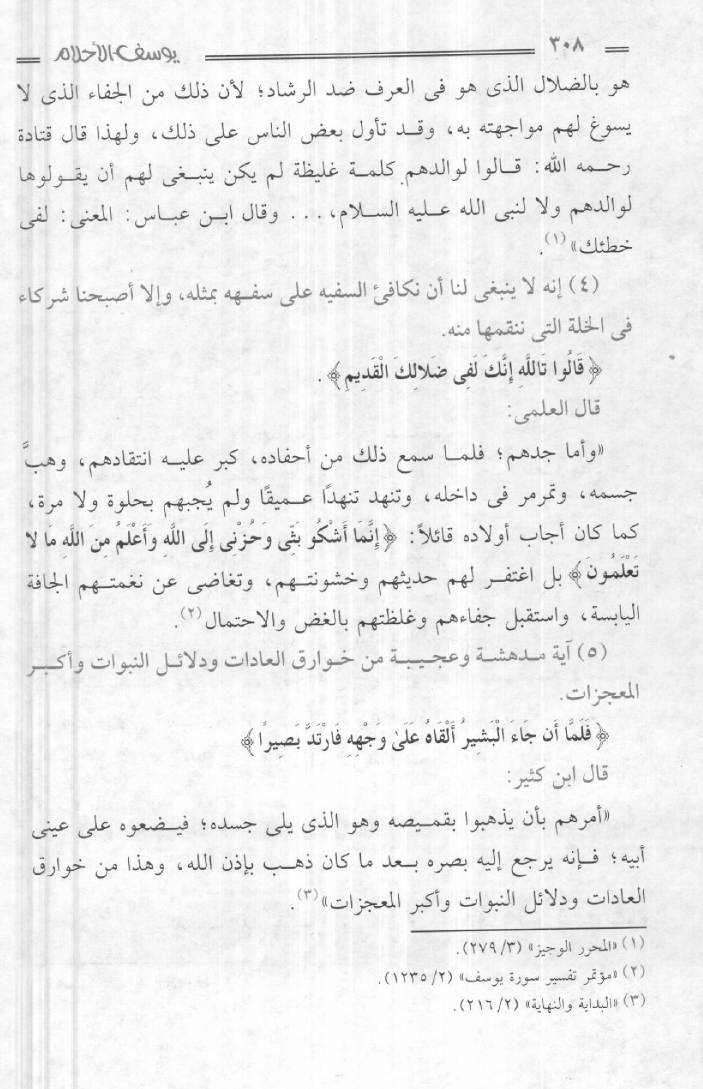 ٣٠٨ يوسف الأحلام
هو بالضلال الذى هو فى العرف ضد الرشاد؛ لأن ذلك من الجفاء الذى لا
يسوغ لهم مواجهته به، وقد تأول بعض الناس على ذلك، ولهذا قال قتادة
رحمه الله: قالوا لوالدهم كلمة غليظة لم يكن ينبغى لهم أن يقولوها
لوالدهم ولا لنبى الله عليه السلام، ... وقال ابن عباس: المعنى: لفى
خطئك» (١).
(٤) إنه لا ينبغى لنا أن نكافئ السفيه على سفهه بمثله، وإلا أصبحنا شركاء
فى الخلة التى ننقمها منه.
﴿ قَالُوا تَاللَّهِ إِنَّكَ لَفِى ضَلالِكَ الْقَدِيمِ ﴾.
قال العلمى:
«وأما جدهم؛ فلما سمع ذلك من أحفاده، كبر عليه انتقادهم، وهبَّ
جسمه، وتمرمر فى داخله، وتنهد تنهدًا عميقًا ولم يُجبهم بحلوة ولا مرة،
كما كان أجاب أولاده قائلاً: ﴿ إِنَّمَا أَشْكُو بَثِّى وَحُزْنِى إِلَى اللَّهِ وَأَعْلَمُ مِنَ اللَّهِ مَا لا
تَعْلَمُونَ ﴾ بل اغتفر لهم حديثهم وخشونتهم، وتغاضى عن نغمتهم الجافة
اليابسة، واستقبل جفاءهم وغلظتهم بالغض والاحتمال (٢).
(٥) آية مدهشة وعجيبة من خوارق العادات ودلائل النبوات وأكبر
المعجزات.
﴿ فَلَمَّا أَن جَاءَ الْبَشِيرُ أَلْقَاهُ عَلَىٰ وَجْهِهِ فَارْتَدَّ بَصِيرًا ﴾
قال ابن كثير:
«أمرهم بأن يذهبوا بقميصه وهو الذى يلى جسده؛ فيضعوه على عينى
أبيه؛ فإنه يرجع إليه بصره بعد ما كان ذهب بإذن الله، وهذا من خوارق
العادات ودلائل النبوات وأكبر المعجزات» (٣).
(١) «المحرر الوجيز» (٣/ ٢٧٩).
(٢) «مؤتمر تفسير سورة يوسف» (٢/ ١٢٣٥).
(٣) «البداية والنهاية» (٢/ ٢١٦).